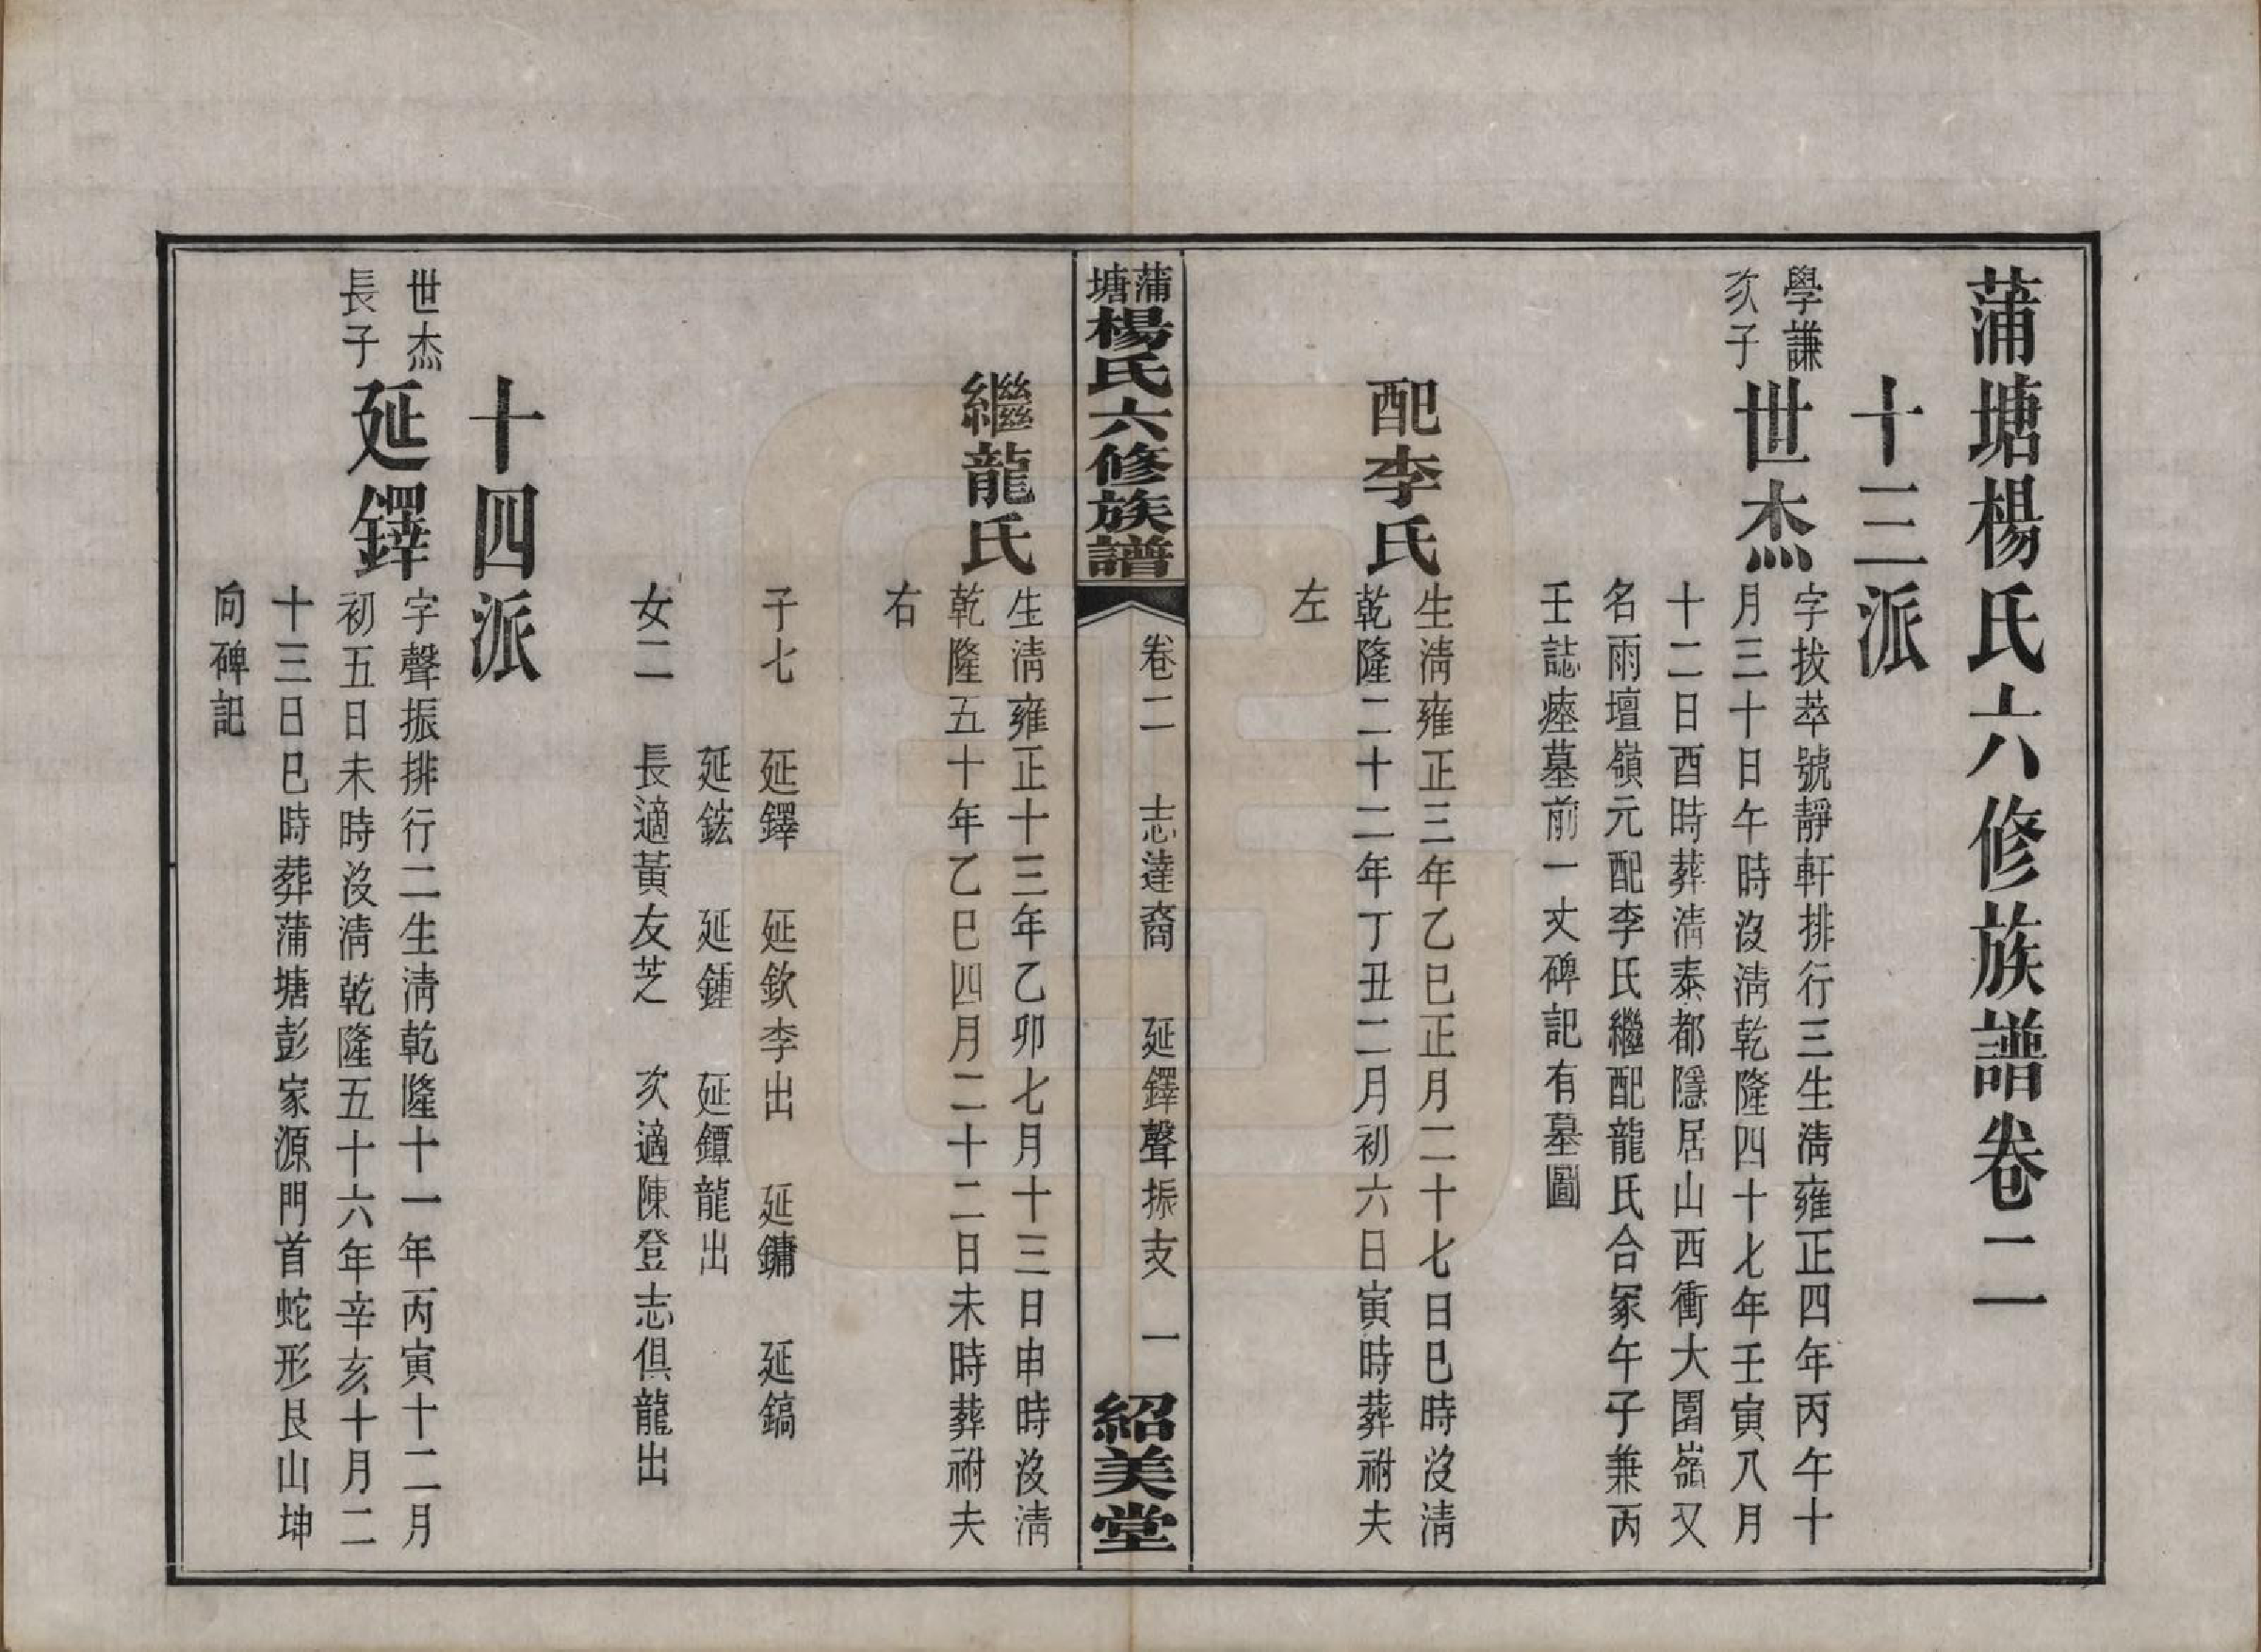 蒲塘楊氏六修族譜卷二
十三派
學謙
次子
世杰
字拔萃號靜軒排行三生清雍正四年丙午十
月三十日午時沒清乾隆四十七年壬寅八月
十二日酉時葬清泰都隱居山西衝大園嶺又
名雨壇嶺元配李氏繼配龍氏合冢午子兼丙
壬誌瘞墓前一丈碑記有墓圖
配李氏
生清雍正三年乙巳正月二十七日巳時沒清
乾隆二十二年丁丑二月初六日寅時葬祔夫
左
蒲塘楊氏六修族譜
卷二 志達裔 延鐸聲振支 一
紹美堂
繼龍氏
生清雍正十三年乙卯七月十三日申時沒清
乾隆五十年乙巳四月二十二日未時葬祔夫
右
子七 延鐸 延欽李出 延鏞 延鎬
延鋐 延鍾 延鐔龍出
女二 長適黃友芝 次適陳登志俱龍出
十四派
世杰
長子
延鐸
字聲振排行二生清乾隆十一年丙寅十二月
初五日未時沒清乾隆五十六年辛亥十月二
十三日巳時葬蒲塘彭家源門首蛇形艮山坤
向碑記